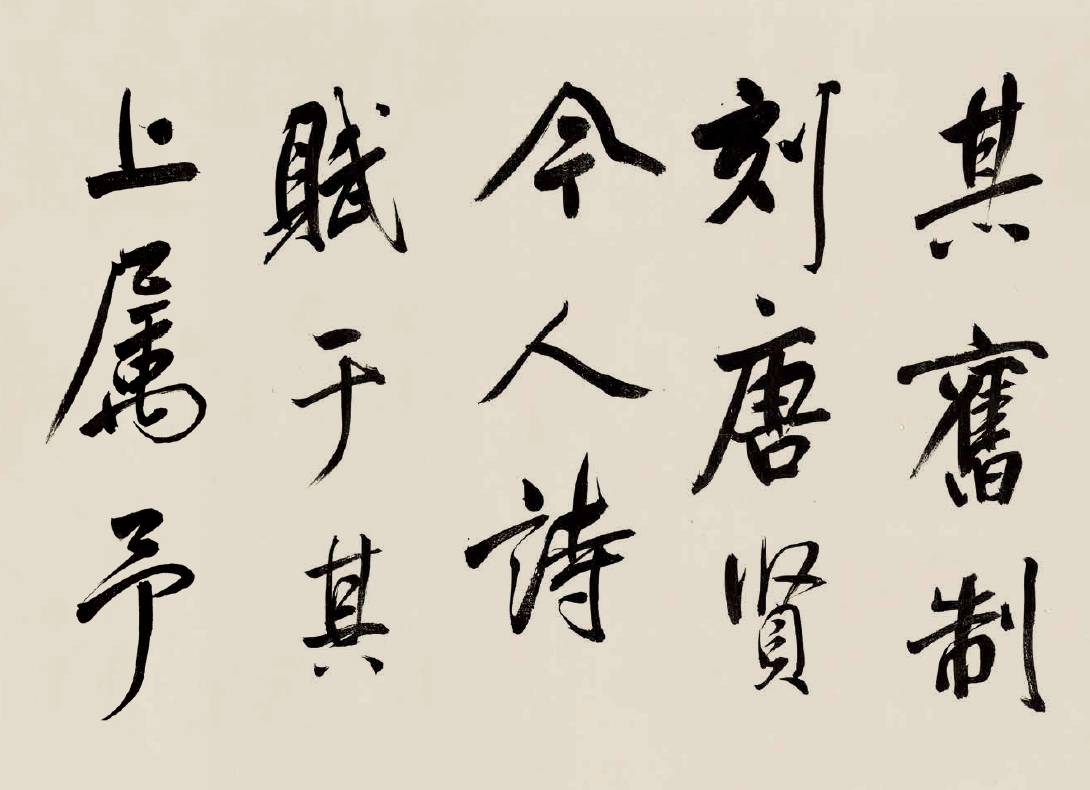 其舊制
刻唐賢
今人詩
賦于其
上属予